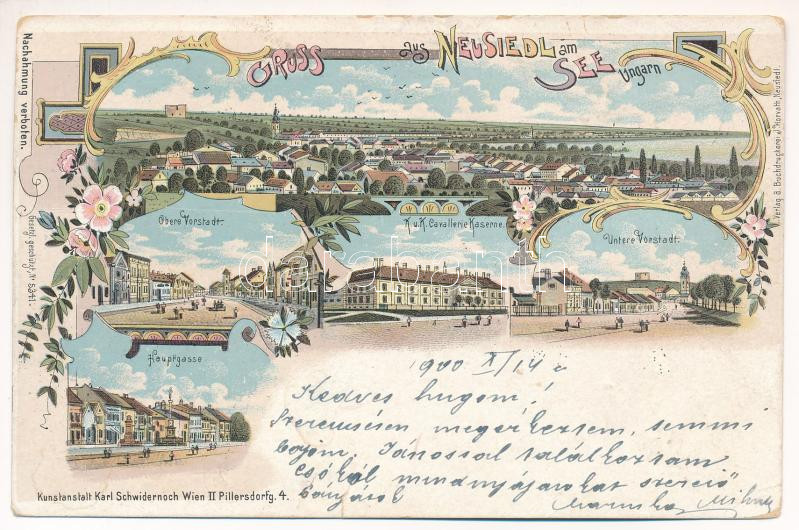 GRUSS aus NEUSIEDL am SEE
Ungarn
Nachahmung verboten.
Gesetzl. geschützt, Nr 5341.
Verlag d. Buchdruckerei J. Horvath, Neusiedl.
Obere Vorstadt.
K. u. K. Cavallerie Kaserne.
Untere Vorstadt.
Hauptgasse
darabanth
1900 X/14
Kedves hugom!
Szerencsésen megérkeztem, semmi
bajom. Jánossal találkoztam
csókol mindnyájunkat szerető
Mariska
Kunstanstalt Karl Schwidernoch Wien II Pillersdorfg. 4.